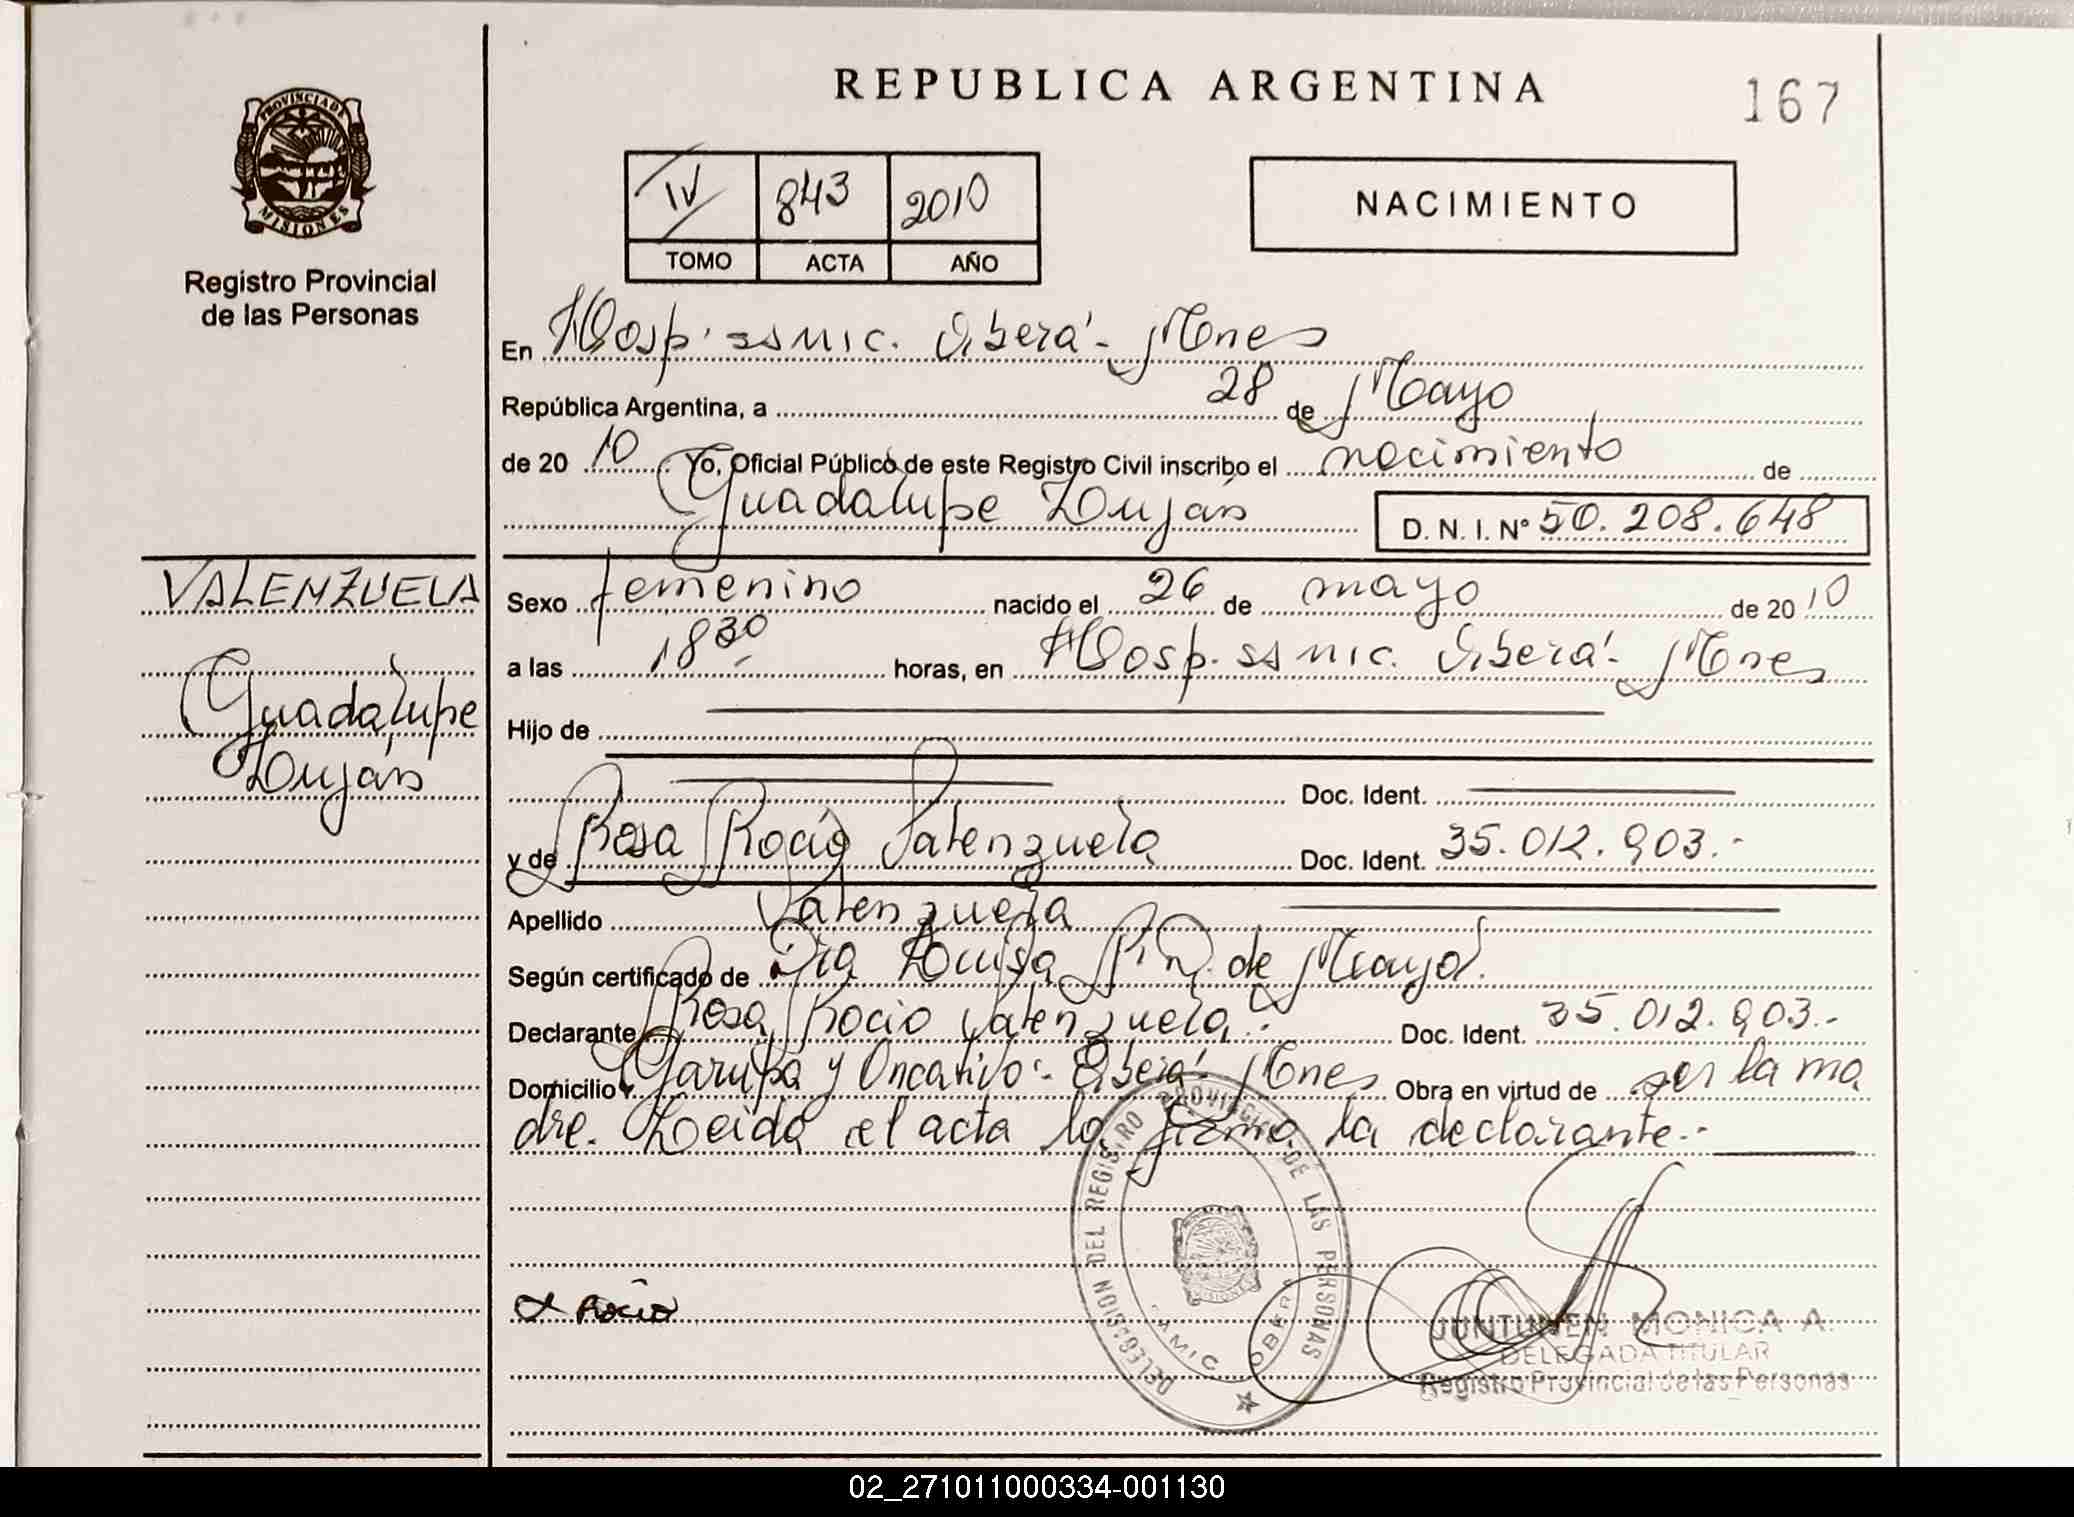 REPUBLICA ARGENTINA
167
PROVINCIA DE
MISIONES
Registro Provincial
de las Personas
IV 843 2010
TOMO ACTA AÑO
NACIMIENTO
En Hosp. SSMIC. Oberá - Mnes
República Argentina, a 28 de Mayo
de 20 10 Yo, Oficial Público de este Registro Civil inscribo el nacimiento de
Guadalupe Luján D. N. I. N° 50.208.648
VALENZUELA
Guadalupe
Luján
Sexo femenino nacido el 26 de mayo de 20 10
a las 18 30 horas, en Hosp. SSMIC. Oberá - Mnes
Hijo de
Doc. Ident.
y de Rosa Rocío Valenzuela Doc. Ident. 35.012.903.-
Apellido Valenzuela
Según certificado de Luisa de
Declarante Rosa Rocío Valenzuela.- Doc. Ident. 35.012.903.-
Domicilio Garupá y Oncativo - Oberá - Mnes Obra en virtud de ser la ma
dre. Leida el acta la firma la declarante.-
x Rocio
DELEGACION DEL REGISTRO PROVINCIAL DE LAS PERSONAS
MISIONES
JUNTUNEN MONICA A.
DELEGADA TITULAR
Registro Provincial de las Personas
02_271011000334-001130